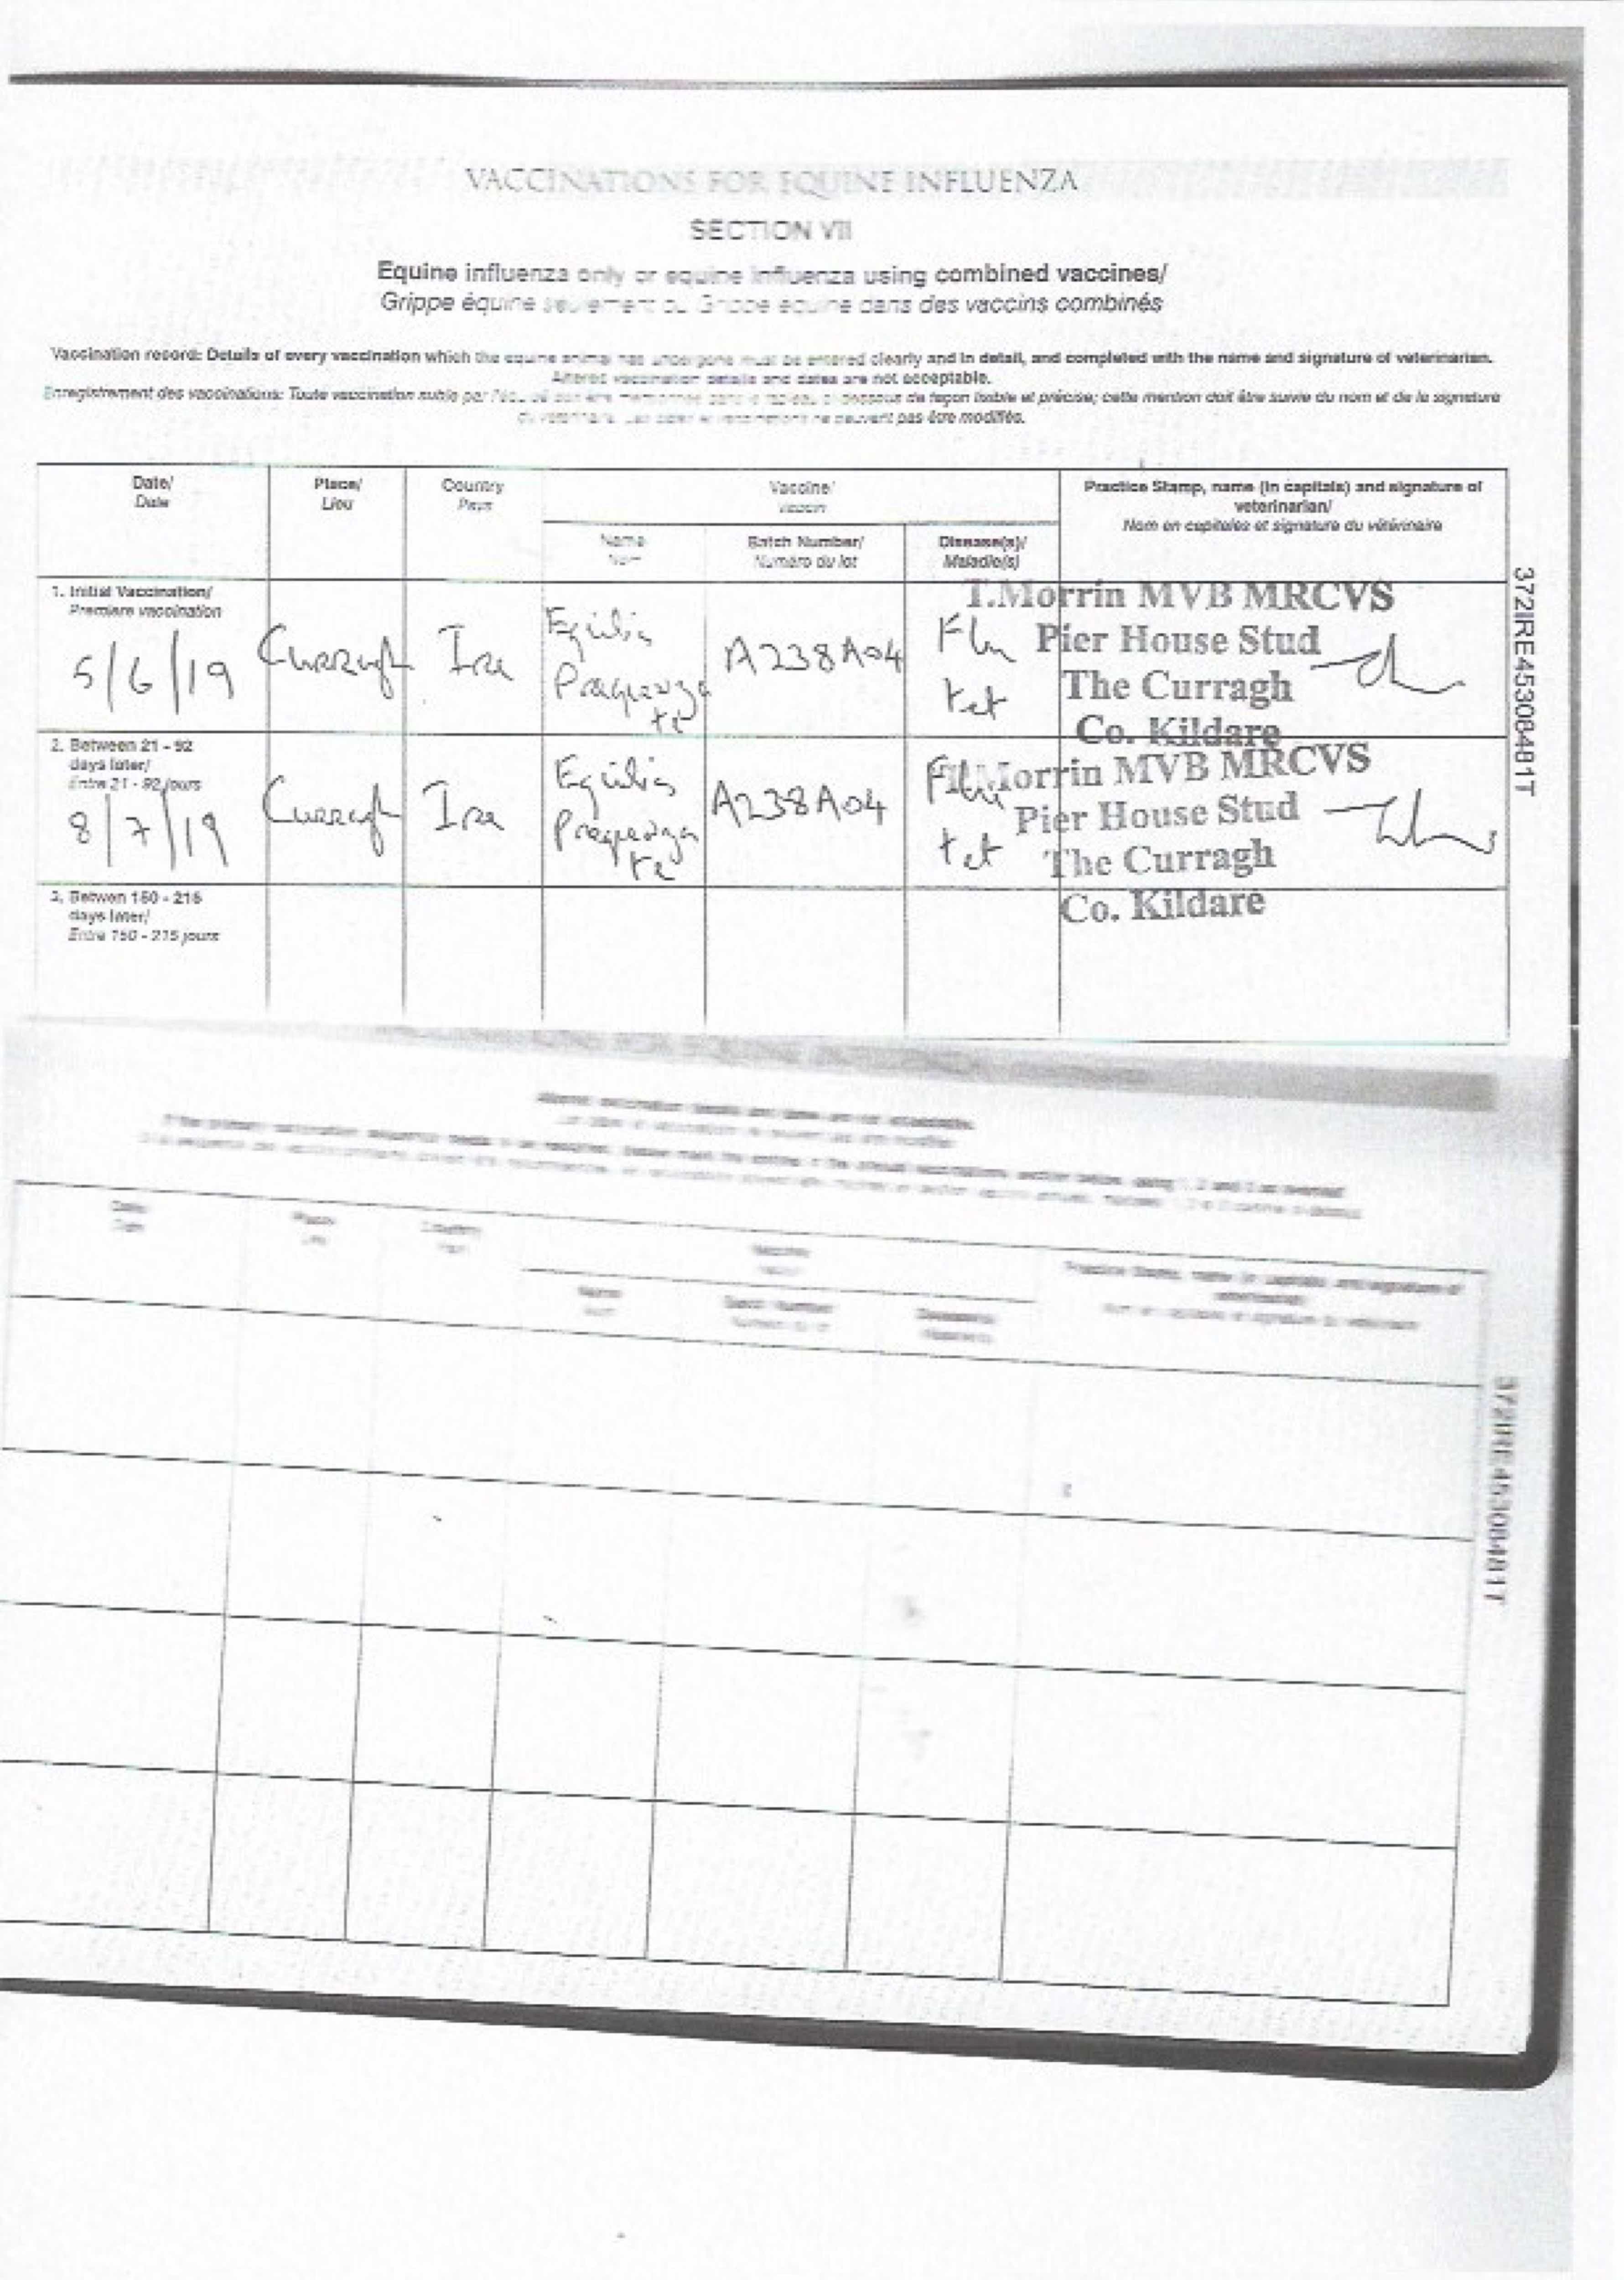 VACCINATIONS FOR EQUINE INFLUENZA
SECTION VII
Equine influenza only or equine influenza using combined vaccines/
Grippe équine seulement ou Grippe équine dans des vaccins combinés
Vaccination record: Details of every vaccination which the equine animal has undergone must be entered clearly and in detail, and completed with the name and signature of veterinarian.
Altered vaccination details and dates are not acceptable.
Enregistrement des vaccinations: Toute vaccination subie par de façon lisible et précise; cette mention doit être suivie du nom et de la signature
du vétérinaire. ne peuvent pas être modifiés.
Date/ Place/ Country Vaccine/ Practice Stamp, name (in capitals) and signature of
Date Lieu Pays Vaccin veterinarian/
Nom en capitales et signature du vétérinaire
Name Batch Number/ Disease(s)/
Nom Numéro du lot Maladie(s)
1. Initial Vaccination/
Premiere vaccination
5/6/19 Curragh Ire Equilis A238A04 Flu T.Morrin MVB MRCVS
Prequenza tet Pier House Stud
te The Curragh
Co. Kildare
2. Between 21 - 92
days later/
Entre 21 - 92 jours
8/7/19 Curragh Ire Equilis A238A04 Flu T.Morrin MVB MRCVS
Prequenza tet Pier House Stud
te The Curragh
Co. Kildare
3. Betwen 150 - 215
days later/
Entre 150 - 215 jours
372IRE45308481T
Altered vaccination details and dates are not acceptable.
Practice Stamp, name (in capitals) and signature of
veterinarian/
Name Batch Number
372IRE45308481T